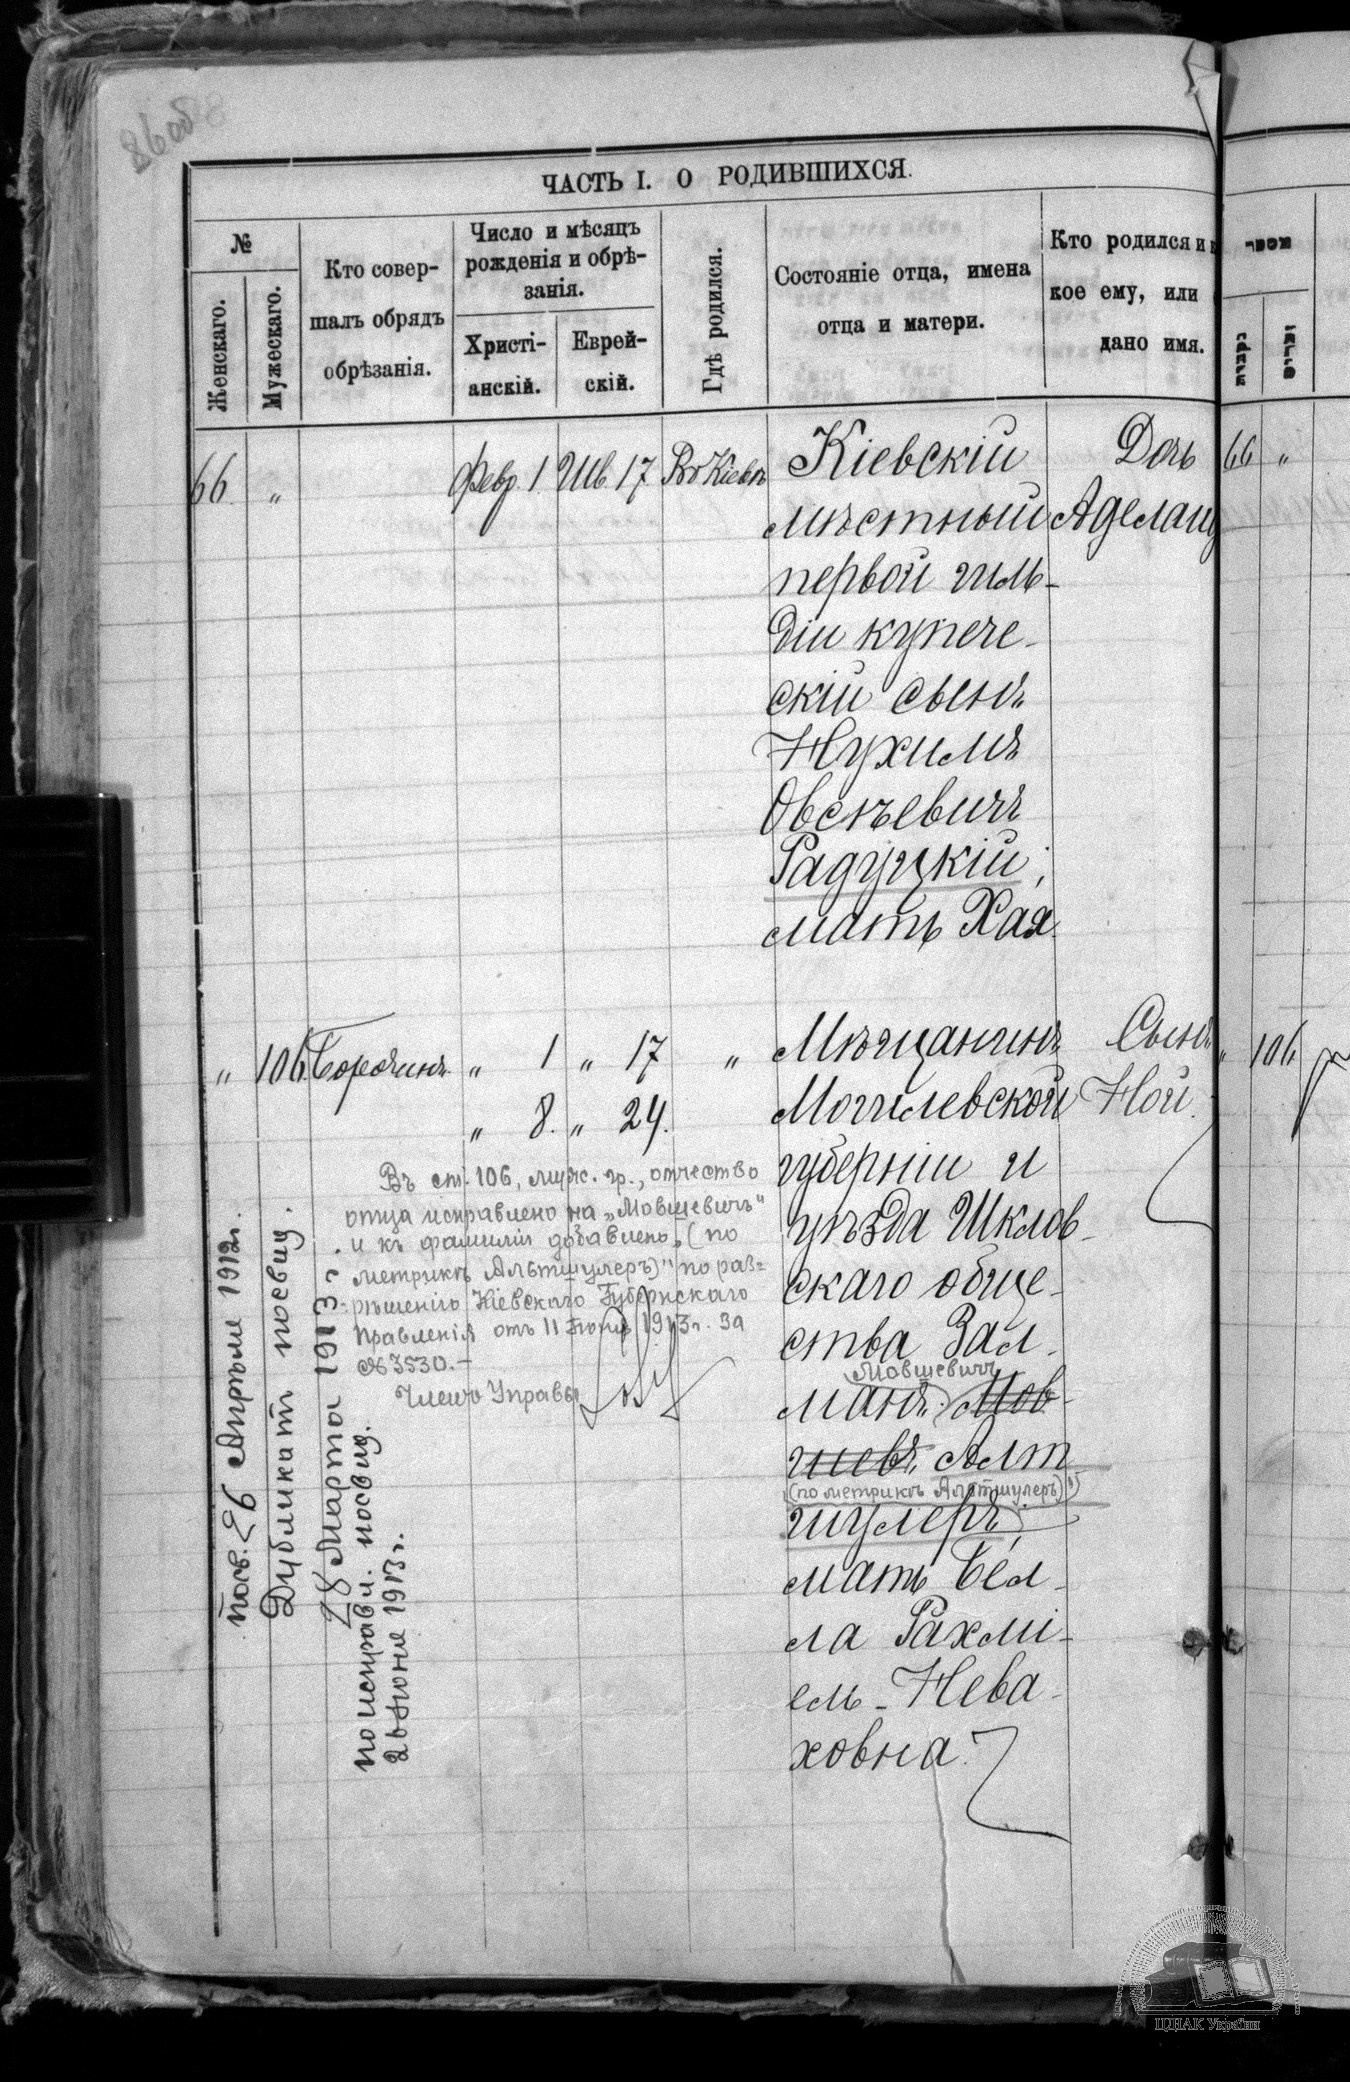 86об
ЧАСТЬ I. О РОДИВШИХСЯ.
№
Женскаго.
Мужескаго.
Кто совер-
шалъ обрядъ
обрѣзанія.
Число и мѣсяцъ
рожденія и обрѣ-
занія.
Христі-
анскій.
Еврей-
скій.
Гдѣ родился.
Состояніе отца, имена
отца и матери.
Кто родился и
кое ему, или
дано имя.
מספר
נקבות
זכרים
66. „ Февр. 1 Шв. 17 Въ Кіевѣ Кіевскій Дочь 66 „
мѣстный Аделаид
первой гиль-
діи купече-
скій сынъ
Нухимъ
Овсѣевичъ
Радуцкій;
мать Хая.
„ 106 Борочинъ „ 1 „ 17 „ Мѣщанинъ Сынъ „ 106
„ 8. „ 24. Могилевской Ной.
губерніи и
уѣзда Шклов-
скаго обще-
ства Зал-
Мовшевичъ
манъ Мов-
шевъ Алт
(по метрикѣ Альтшулеръ)
шулеръ;
мать Бел-
ла Рахмі-
ель-Нева-
ховна.
Въ ст. 106, муж. гр., отчество
отца исправлено на „Мовшевичъ"
и къ фамиліи добавлено „(по
метрикѣ Альтшулеръ)" по раз=
рѣшенію Кіевскаго Губернскаго
Правленія отъ 11 Іюня 1913 г. за
№ 3530.—
Членъ Управы
посв. 26 Апрѣля 1912 г.
Дубликат посвид.
28 Марта 1913 г.
по исправл. посвид.
26 Іюня 1913 г.
ЦДІАК України